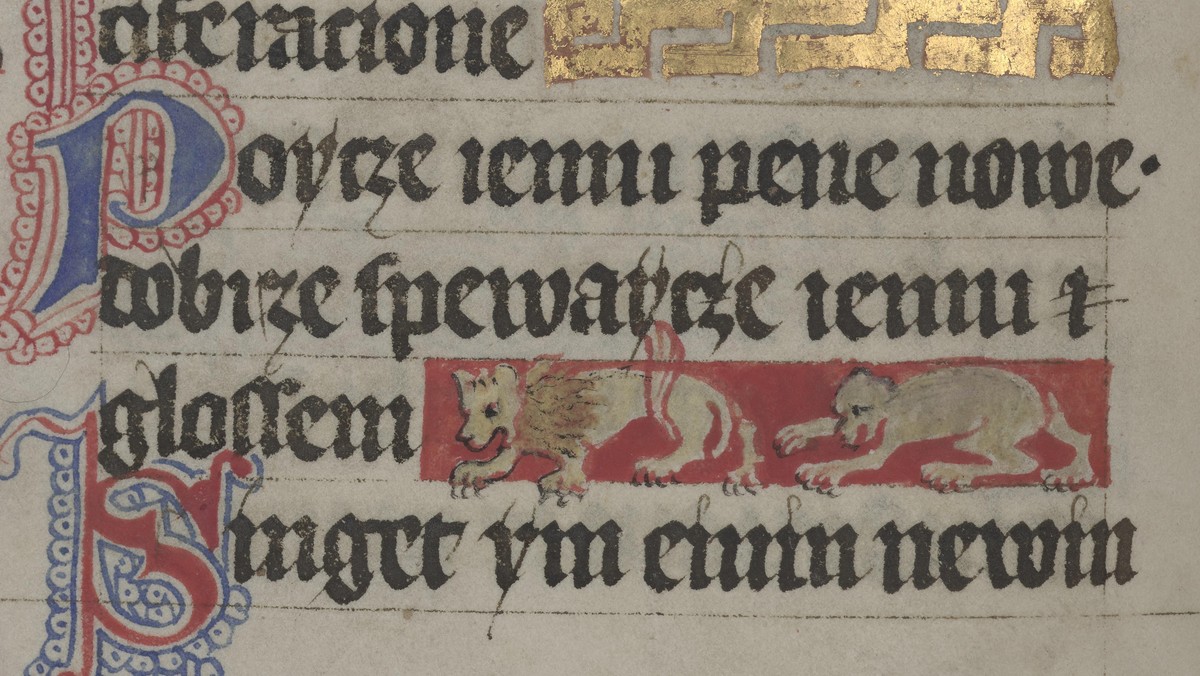 ciferacione
Poycze iemu pene nowe·
dobrze spewaycze iemu ⁊
glossem
Singet ym einin newin